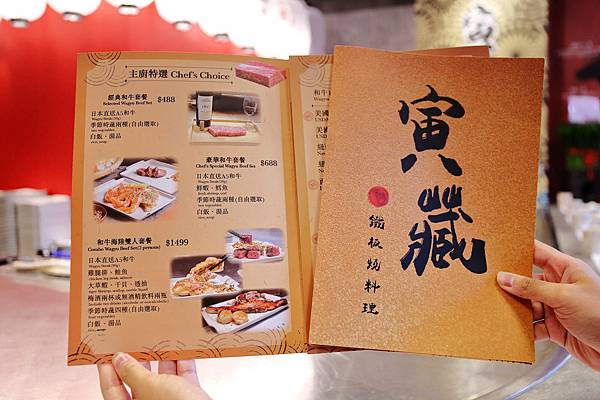 主廚特選 Chef's Choice
經典和牛套餐 $488
Selected Wagyu Beef Set
日本直送A5和牛
季節時蔬兩種(自由選取)
two vegetables
白飯、湯品
rice, soup
豪華和牛套餐 $688
Chef's Special Wagyu Beef Set
日本直送A5和牛
鮮蝦、鱈魚
季節時蔬兩種(自由選取)
two vegetables
白飯、湯品
rice, soup
和牛海陸雙人套餐 $1499
Combo Wagyu Beef Set(2 persons)
日本直送A5和牛
雞腿排、鮭魚
大草蝦、干貝、透抽
梅酒兩杯或無酒精飲料兩瓶
季節時蔬四種(自由選取)
four vegetables
白飯、湯品
rice, soup
寅藏
鐵板燒料理